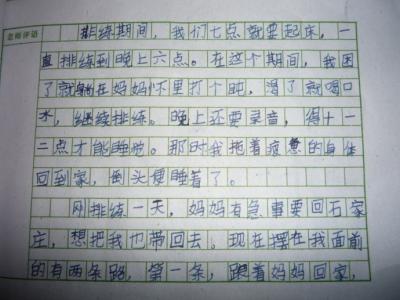 老师评语
排练期间，我们七点就要起床，一
直排练到晚上六点。在这个期间，我困
了就躺在妈妈怀里打个盹，渴了就喝口
水，继续排练。晚上还要录音，得十一
二点才能睡觉。那时我拖着疲惫的身体
回到家，倒头便睡着了。
刚排练一天，妈妈有急事要回石家
庄，想把我也带回去。现在摆在我面前
的有两条路，第一条，跟着妈妈回家，